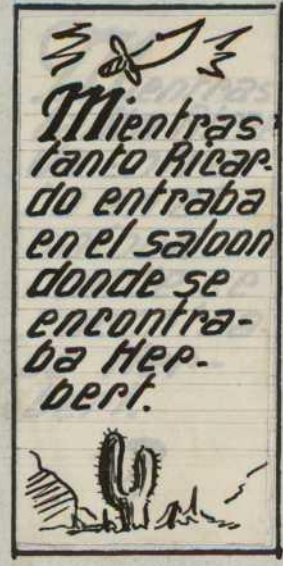 Mientras
tanto Ricar-
do entraba
en el saloon
donde se
encontra-
ba Her-
bert.